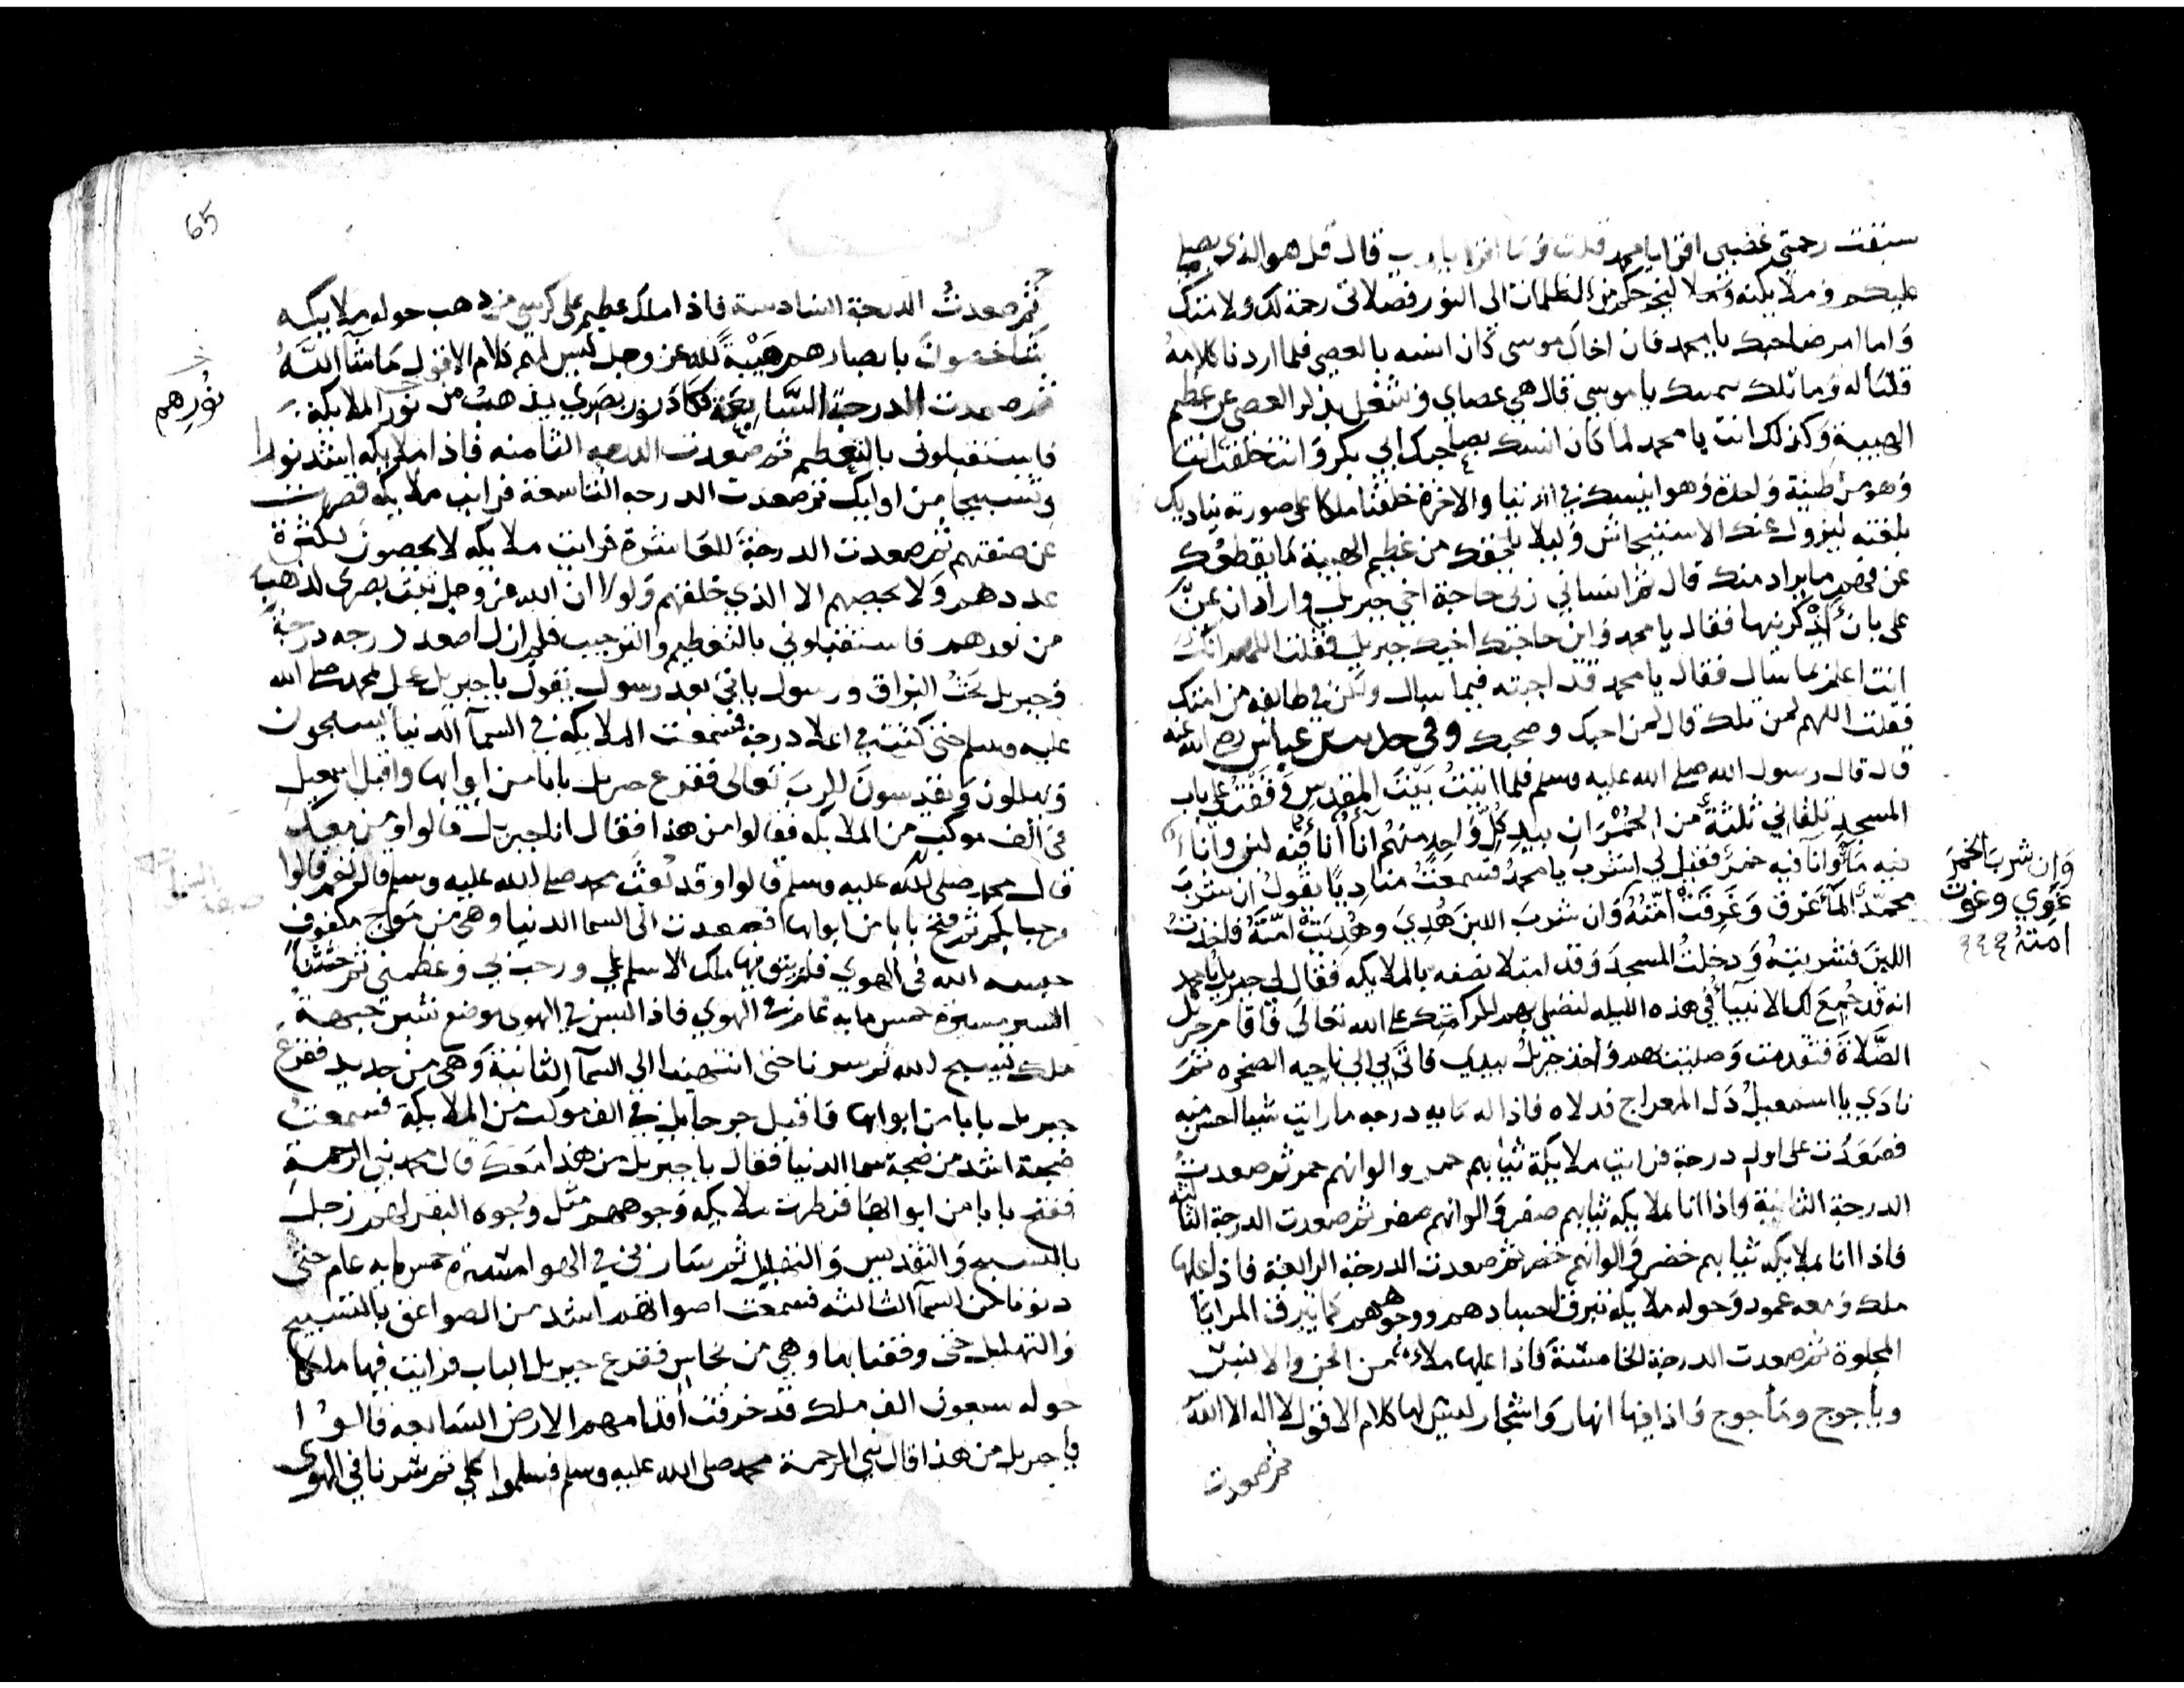 سبقت رحمتي غضبي اقرا يا محمد قلت وما اقرا يا رب قال قل هو الذي يصلي
عليكم وملايكته وتعلا ليخرجكم من الظلمات الى النور فصلاتى رحمة لك ولامتك
واما امر صاحبك يا محمد فان اخاك موسى كان انسه بالعصى فلما اردنا كلامه
قلنا له وما تلك بيمينك يا موسى قال هي عصاي وشغل بذكر العصى عن عظيم
الهيبة وكذلك انت يا محمد لما كان انسك بصاحبك ابي بكر وانت خلقت انت
وهو من طينة واحدة وهو انيسك في الدنيا والاخرة خلقنا ملكا على صورته يناديك
بلغته ليزول عنك الاستيحاش وليلا يلحقك من عظيم الهيبة ما يقطعك
عن فهم ما يراد منك قال ثم انساني ربي حاجة اخي جبريل واراد ان يمن
على بان اذكرنيها فقال يا محمد واين حاجتك اخيك جبريل فقلت اللهم انك
انت اعلم بما سال فقال يا محمد قد اجبته فيما سال ولكن في طايفه من امتك
فقلت اللهم لمن تلك قال لمن احبك وصحبك وفي حديث بن عباس رضي الله عنه
قال قال رسول الله صلى الله عليه وسلم فلما اتيت بيت المقدس وقفت على باب
المسجد تلقاني ثلثة من بيد كل واحد منهم انا انا فيه لبن وانا
فيه ما وانا فيه خمر فقيل لي اشرب يا محمد فسمعت مناديا يقول ان شرب
محمد الما غرق وغرقت امته وان شرب اللبن هدي وهديت امته فاخذت
اللبن فشربته ودخلت المسجد وقد امتلا نصفه بالملايكه فقال لي جبريل يا محمد
انه قد جمع لك الانبيا في هذه الليله لتصلي بهم لكرامتك على الله تعالى فاقام جبريل
الصلاة فتقدمت وصليت بهم واخذ جبريل بيدي فاتى بي الى ناحيه الصخره ثم
نادي يا اسمعيل دل المعراج فدلاه فاذا له مايه درجه ما رايت شيا احسن منه
فصعدت على اول درجة فرايت ملايكة ثيابهم حمر والوانهم حمر ثم صعدت
الدرجة الثانية واذا انا بملايكه ثيابهم صفر والوانهم صفر ثم صعدت الدرجة الثالثه
فاذا انا بملايكه ثيابهم خضر والوانهم خضر ثم صعدت الدرجة الرابعة فاذا عليها
ملك ومعه عمود وحوله ملايكه تبرق اجسادهم ووجوههم كما تبرق المرايا
المجلوة ثم صعدت الدرجة الخامسة فاذا عليها ملا من الجن والانس
وياجوج وماجوج واذا فيها انهار واشجار ليس لها كلام الا قول لا اله الا الله
ثم صعدت
وان شرب الخمر
غوي وغوت
امته
65
ثم صعدت الدرجة السادسة فاذا ملك عظيم على كرسي من ذهب حوله ملايكه
شاخصون بابصارهم هيبة لله عز وجل ليس لهم كلام الا قول ما شا الله
ثم صعدت الدرجة السابعة فكاد نور بصري يذهب من نور الملايكة
نورهم
فاستقبلوني بالتعظيم ثم صعدت الدرجه الثامنه فاذا ملايكه اشد نورا
وتسبيحا من اوليك ثم صعدت الدرجه التاسعة فرايت ملايكه قصرت
عن صفتهم ثم صعدت الدرجة العاشرة فرايت ملايكه لا يحصون لكثرة
عددهم ولا يحصيهم الا الذي خلقهم ولولا ان الله عز وجل ثبت بصرى لذهب
من نورهم فاستقبلوني بالتعظيم والترحيب فلم ازل اصعد درجه درجة
وجبريل تحت البراق ورسول ياتي بعد رسول يقول يا جبريل عجل محمد صلى الله
عليه وسلم حتى كنت في اعلا درجة فسمعت الملايكة في السما الدنيا يسبحون
ويهللون ويقدسون للرب تعالى فقرع جبريل بابا من ابوابها واقبل اسمعيل
في الف موكب من الملايكه فقالوا من هذا فقال انا جبريل قالوا ومن معك
قال محمد صلى الله عليه وسلم قالوا وقد بعث محمد صلى الله عليه وسلم قال نعم قالوا
مرحبا بكم ثم فتح بابا من ابوابها فصعدت الى السما الدنيا وهي من موج مكفوف
حبسه الله في الهوي فلم يبق فيها ملك الا سلم علي ورحب بي وعظمني ثم حثثنا
السير مسيرة خمس مايه عام في الهوي فاذا ليس في الهوى موضع شبر
ملك يسبح لله ثم سرنا حتى انتهينا الى السما الثانية وهي من حديد فقرع
جبريل بابا من ابوابها فاقبل في الف موكب من الملايكة فسمعت
ضجة اشد من ضجة سما الدنيا فقال يا جبريل من هذا معك قال محمد نبي الرحمة
ففتح بابا من ابوابها فنظرت ملايكه وجوههم مثل وجوه البقر لهم زجل
بالتسبيح والتقديس والتهليل ثم سار بي في الهوا مسيرة خمس مايه عام حتى
دنونا من السما الثالثه فسمعت اصواتهم اشد من الصواعق بالتسبيح
والتهليل حتى وقفنا بها وهي من نحاس فقرع جبريل الباب فرايت فيها ملكا
حوله سبعون الف ملك قد خرقت اقدامهم الارض السابعه قالوا
يا جبريل من هذا قال نبي الرحمة محمد صلى الله عليه وسلم فسلموا علي ثم سرنا في الهوى